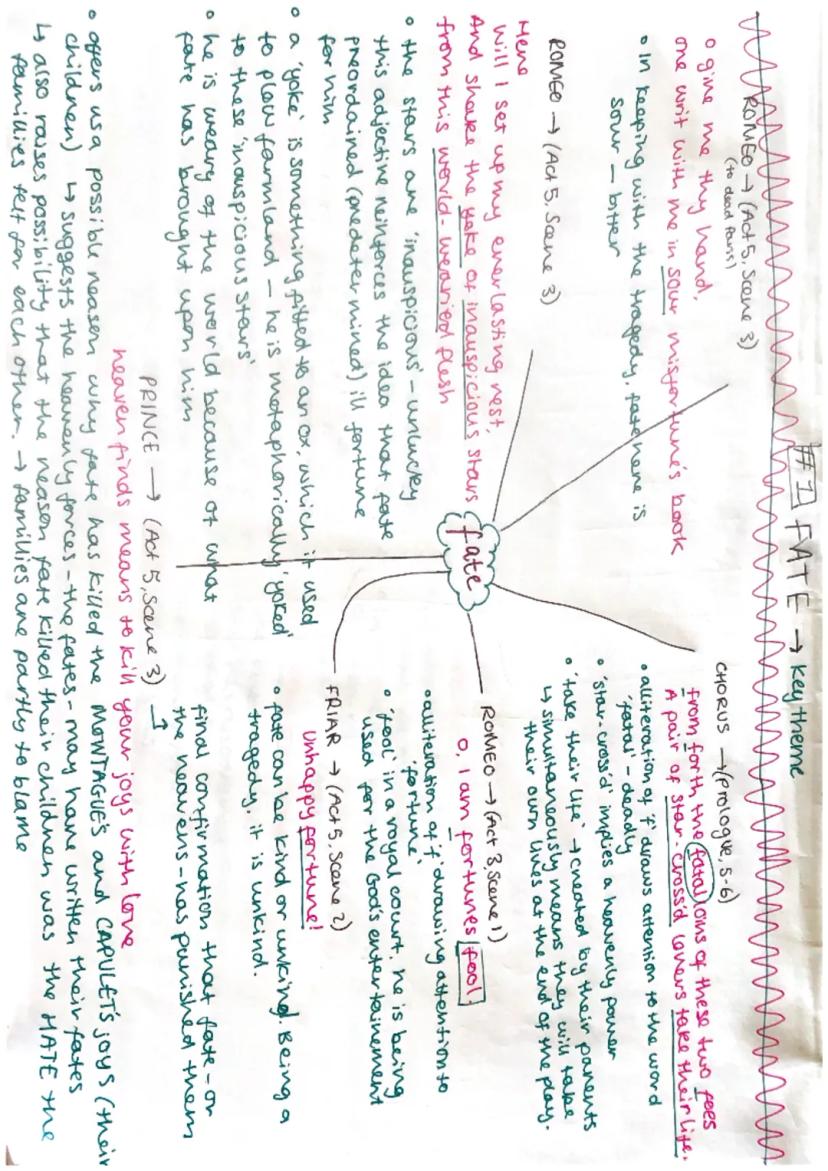 #1 FATE → key theme
ROMEO → (Act 5, Scene 3)
(to dead Paris)
o give me thy hand,
one writ with me in sour misfortune's book
• in keeping with the tragedy, fate here is
sour – bitter
ROMEO → (Act 5, Scene 3)
Here
Will I set up my everlasting rest,
And shake the yoke of inauspicious stars
from this world-wearied flesh
• the stars are 'inauspicious' – unlucky
this adjective reinforces the idea that fate
preordained (predetermined) ill fortune
for him
• a 'yoke' is something fitted to an ox, which it used
to plow farmland – he is metaphorically 'yoked'
to these 'inauspicious stars'
• he is weary of the world because of what
fate has brought upon him
fate
CHORUS → (prologue, 5-6)
from forth the fatal loins of these two foes
A pair of star-cross'd lovers take their life.
• alliteration of 'f' draws attention to the word
'fatal' – deadly
• 'star-cross'd' implies a heavenly power
• 'take their life' → created by their parents
↳ simultaneously means they will take
their own lives at the end of the play.
ROMEO → (Act 3, Scene 1)
O, I am fortunes fool
• alliteration of 'f' drawing attention to
'fortune'
• 'fool' in a royal court, he is being
used for the God's entertainement
FRIAR → (Act 5, Scene 2)
Unhappy fortune!
• fate can be kind or unkind. Being a
tragedy, it is unkind.
PRINCE → (Act 5, Scene 3) →
final confirmation that fate – or
the heavens – has punished them
heaven finds means to kill your joys with love
• offers us a possible reason why fate has killed the MONTAGUE'S and CAPULET'S joys (their
children) ↳ suggests the heavenly forces – the fates – may have written their fates
↳ also raises possibility that the reason fate killed their children was the HATE the
families felt for each other. → families are partly to blame